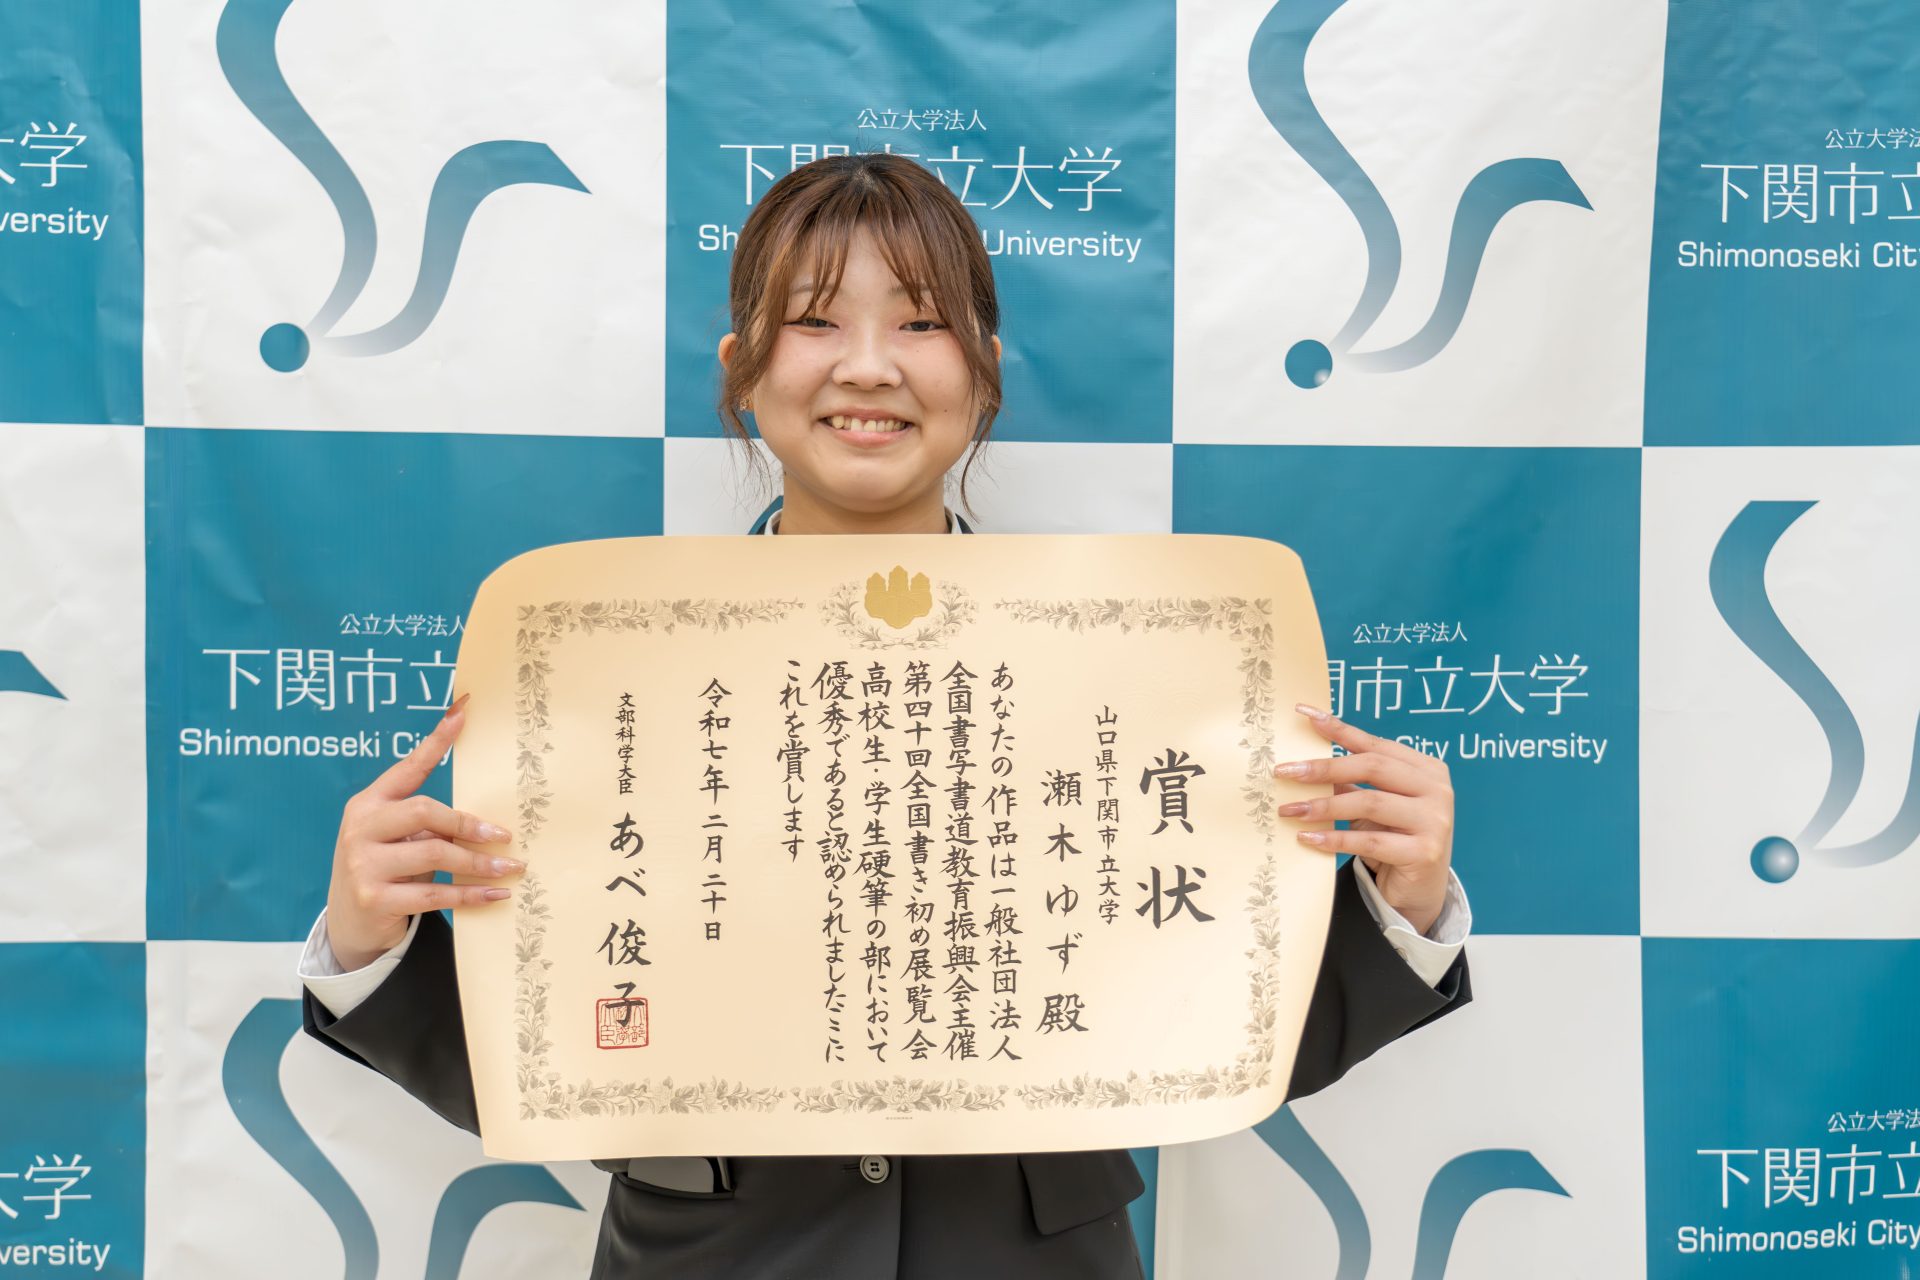 大学
versity
公立大学法人
下関市立大学
Sh University
公立大学法
下関市立
Shimonoseki City
公立大学法人
下関市立
Shimonoseki City
公立大学法人
関市立大学
City University
賞状
山口県下関市立大学
瀬木ゆず殿
あなたの作品は一般社団法人
全国書写書道教育振興会主催
第四十回全国書き初め展覧会
高校生・学生硬筆の部において
優秀であると認められましたここに
これを賞します
令和七年二月二十日
文部科学大臣 あべ俊子
大学
versity
公立大学法
下関市立
Shimonoseki City